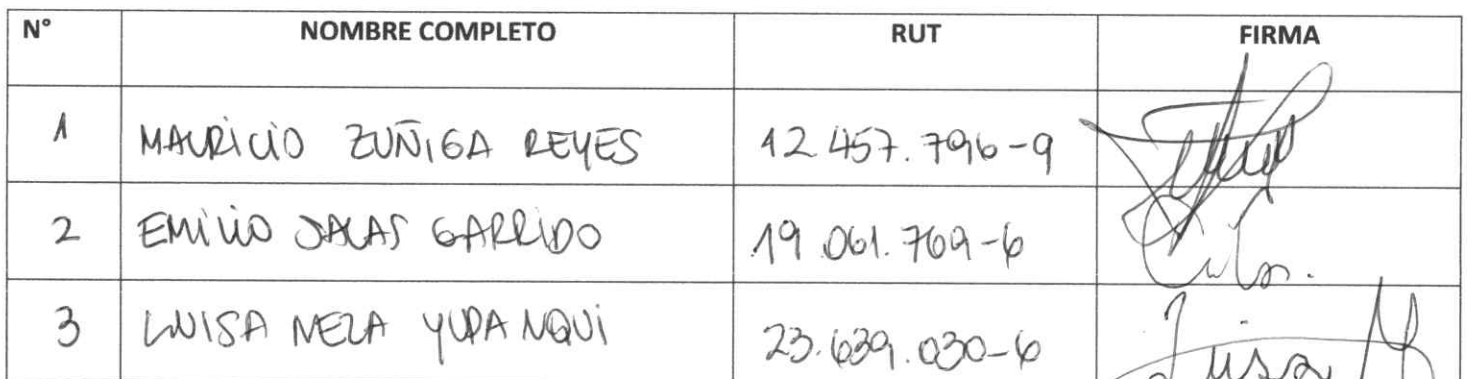 N° NOMBRE COMPLETO RUT FIRMA
1 MAURICIO ZUÑIGA REYES 12.457.796-9
2 EMILIO SALAS GARRIDO 19.061.769-6
3 LUISA MEZA YUPANQUI 23.639.030-6 Luisa M